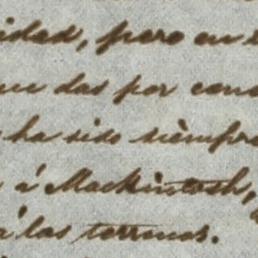 idad, pero en
que das por con
ha sido sièmpre
á Mackintosh,
á las terrenos.